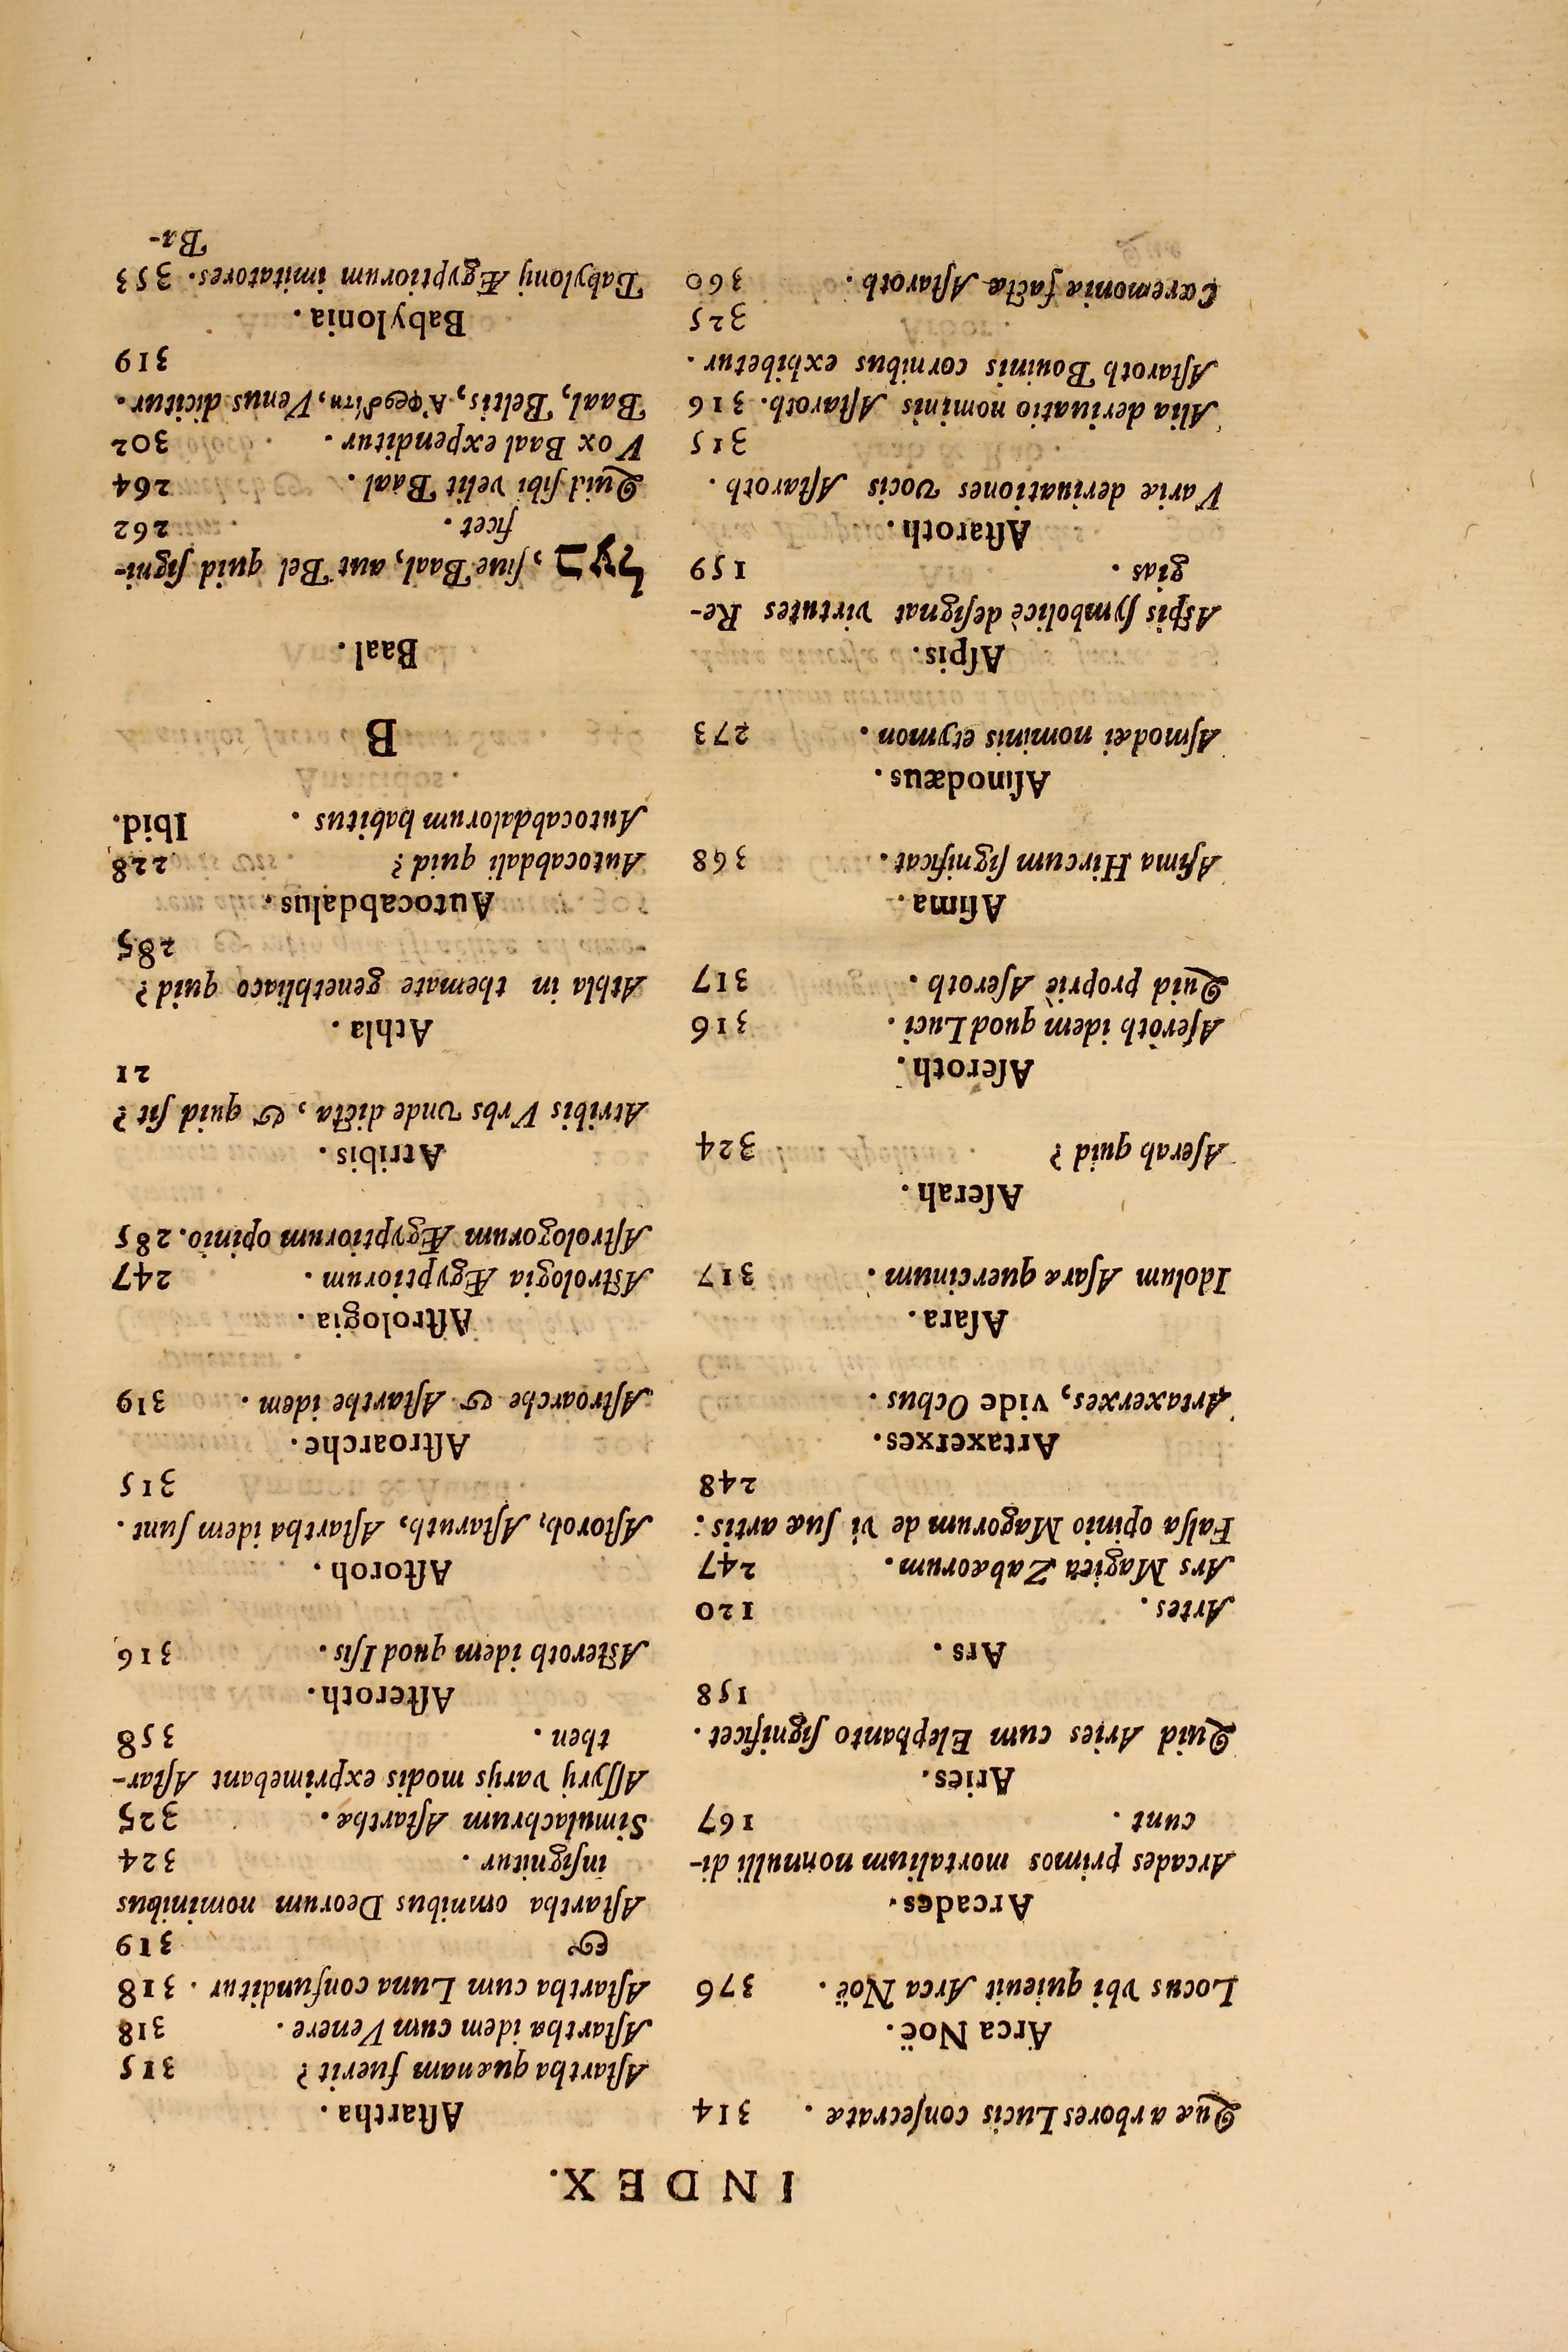 INDEX.
Quæ arbores Lucis conſecratæ. 314
Arca Noë.
Locus vbi quieuit Arca Noë. 376
Arcades.
Arcades primos mortalium nonnulli di-
cunt. 167
Aries.
Quid Aries cum Elephanto ſignificet.
158
Ars.
Artes. 120
Ars Magica Zabæorum. 247
Falſa opinio Magorum de vi ſuæ artis:
248
Artaxerxes.
Artaxerxes, vide Ochus.
Aſara.
Idolum Aſaræ quercinum. 317
Aſerah.
Aſerah quid? 324
Aſeroth.
Aſeroth idem quod Luci. 316
Quid propriè Aſeroth. 317
Aſima.
Aſima Hircum ſignificat. 368
Aſmodæus.
Aſmodæi nominis etymon. 273
Aſpis.
Aſpis ſymbolicè deſignat virtutes Re-
gias. 159
Aſtaroth.
Variæ deriuationes vocis Aſtaroth.
315
Alia deriuatio nominis Aſtaroth. 316
Aſtaroth Bouinis cornibus exhibetur.
325
Cæremoniæ factæ Aſtaroth. 360
Aſtartha.
Aſtartha quænam fuerit? 315
Aſtartha idem cum Venere. 318
Aſtartha cum Luna confunditur. 318
& 319
Aſtartha omnibus Deorum nominibus
inſignitur. 324
Simulachrum Aſtarthæ. 325
Aſſyrij varijs modis exprimebant Aſtar-
then. 358
Aſteroth.
Aſteroth idem quod Iſis. 316
Aſtoroh.
Aſtoroh, Aſtaruth, Aſtartha idem ſunt.
315
Aſtroarche.
Aſtroarche & Aſtarthe idem. 319
Aſtrologia.
Aſtrologia Ægyptiorum. 247
Aſtrologorum Ægyptiorum opinio. 285
Atribis.
Atribis Vrbs vnde dicta, & quid ſit?
21
Athla.
Athla in themate genethliaco quid?
285
Autocabdalus.
Autocabdali quid? 228
Autocabdalorum habitus. Ibid.
B
Baal.
בעל, ſiue Baal, aut Bel quid ſigni-
ficet. 262
Quid ſibi velit Baal. 264
Vox Baal expenditur. 302
Baal, Beltis, Ἀφροδίτη, Venus dicitur.
319
Babylonia.
Babylonij Ægyptiorum imitatores. 353
Ba-